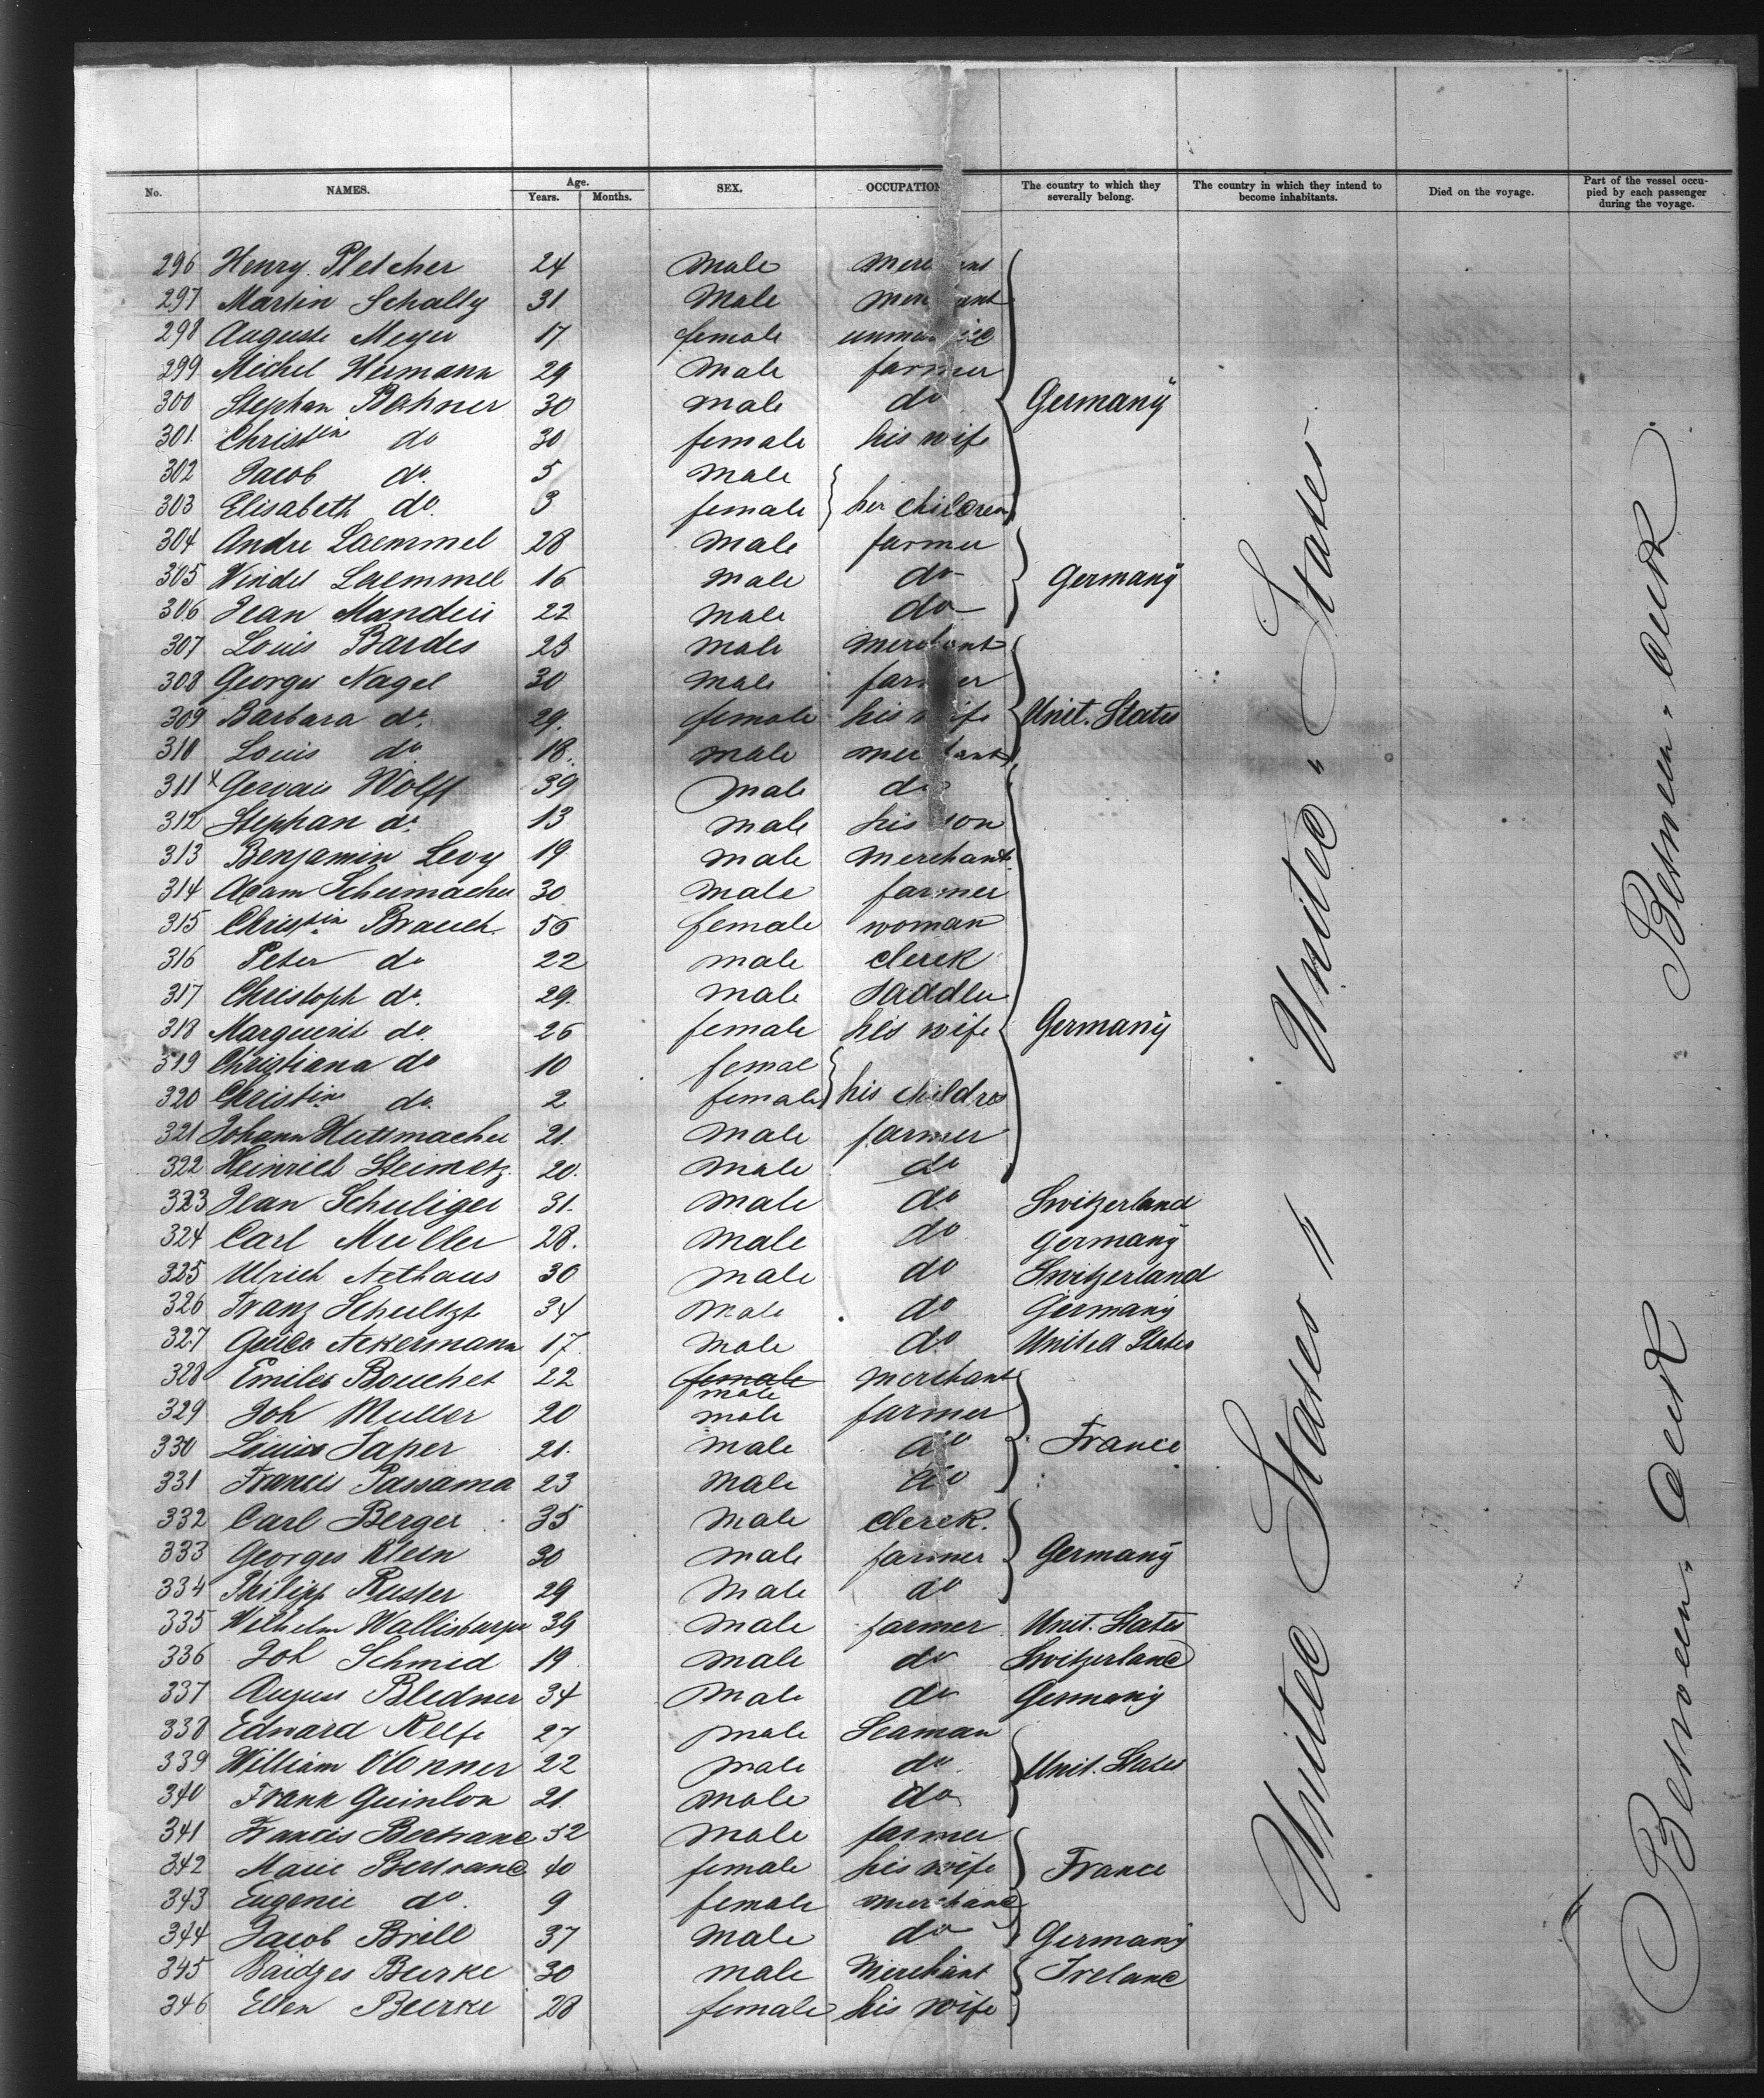 No. NAMES. Age. Years. Months. SEX. OCCUPATION The country to which they severally belong. The country in which they intend to become inhabitants. Died on the voyage. Part of the vessel occupied by each passenger during the voyage.
296 Henry Pletcher 24 male merchant
297 Martin Schally 31 Male merchant
298 Auguste Meyer 17 female
299 Michel Hermann 29 male farmer
300 Stephan Bahner 30 male do Germany
301 Christin do 30 female his wife
302 Jacob do. 5 male
303 Elisabeth do. 3 female her children
304 Andre Laemmel 28 male farmer
305 Windel Laemmel 16 male do Germany
306 Jean 22 male do
307 Louis Bardes 23 male merchant
308 Georges Nagel 30 male farmer
309 Barbara do. 29. female his wife Unit. States
310 Louis do 18. male merchant
311 x Gervais Wolff 39 male do
312 Stephan do. 13 male his son
313 Benjamin Levy 19 male Merchant
314 Adam Schumacher 30 male farmer
315 Christin Brauch 56 female woman
316 Peter do 22 male clerck
317 Christoph do. 29. male saddler
318 Marguerit do. 26 female his wife Germany
319 Christiana do 10 femal
320 Christin do. 2 female his children
321 Johann Huttmacher 21. male farmer
322 Heinrich Steimetz 20. male do
323 Jean Schuliger 31. male do Switzerland
324 Carl Muller 28. male do Germany
325 Ulrich Nethaus 30 male do Switzerland
326 Franz Schultze 34 male do Germany
327 Ackermann 17. male do United States
328 Emiles Bouchet 22 female male merchant
329 Joh Muller 20 male farmer
330 Louis Saper 21. male do France
331 Francis Passama 23 male do
332 Carl Berger 35 male clerck.
333 Georges Klein 30 male farmer Germany
334 Philipp Ruster 29 male do
335 Wilhelm 39 male farmer Unit. States
336 Joh Schmid 19 male do Switzerland
337 August Bledner 34 male do Germany
338 Edward Keefe 27 male Seaman
339 William O'Conner 22 male do. Unit. States
340 Frank Quinlon 21. male do
341 Francis Bertrand 52 male farmer
342 Marie Bertrand 40 female his wife France
343 Eugenie do. 9 female merchand
344 Jacob Brill 37 male do Germany
345 Burke 30 male Merchant Ireland
346 Ellen Burke 28 female his wife
United " States
United States "
Between " deck
Between " deck